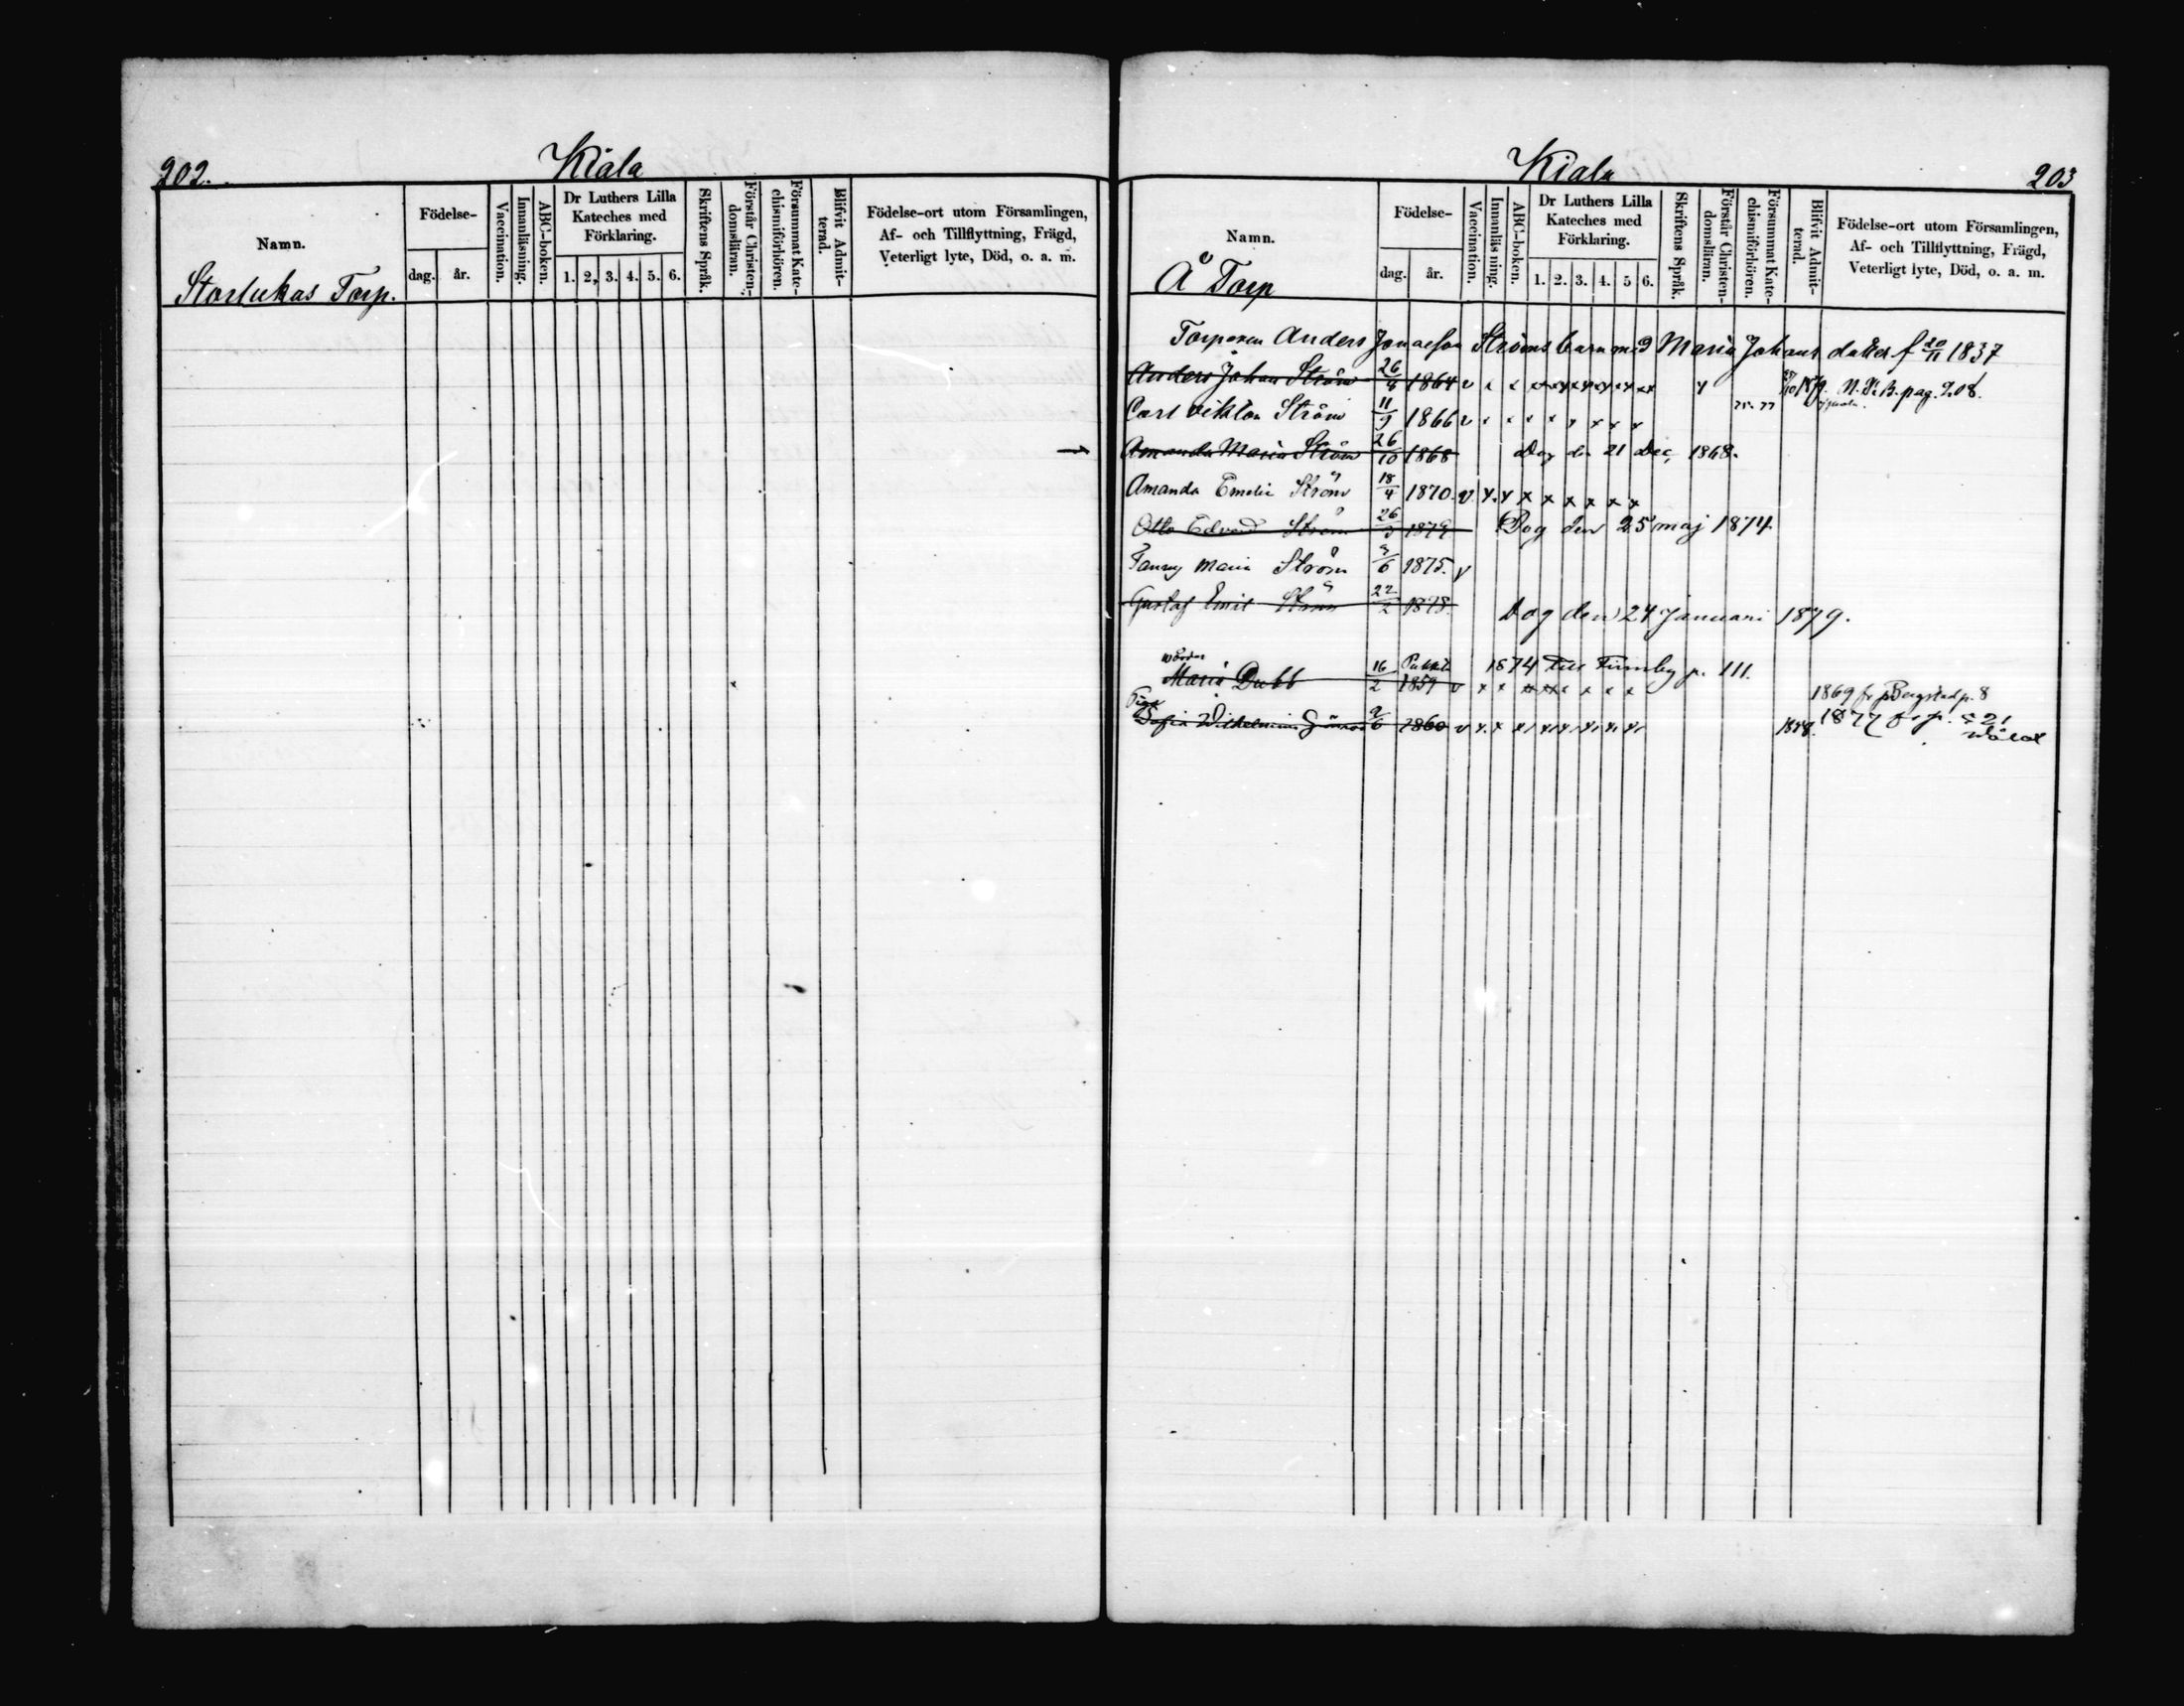 202.
Kiala
Namn.
Storlukas Torp.
Födelse-
dag. år.
Vaccination.
Innanläsning.
ABC-boken.
Dr Luthers Lilla
Kateches med
Förklaring.
1. 2, 3. 4. 5. 6.
Skriftens Språk.
Förstår Christen-
domsläran.
Försummat Kate-
chismiförhören.
Blifvit Admit-
terad.
Födelse-ort utom Församlingen,
Af- och Tillflyttning, Frägd,
Veterligt lyte, Död, o. a. m.
Kiala
203
Namn.
Å Torp
Födelse-
dag. år.
Vaccination.
Innanläsning.
ABC-boken.
Dr Luthers Lilla
Kateches med
Förklaring.
1. 2. 3. 4. 5 6.
Skriftens Språk.
Förstår Christen-
domsläran.
Försummat Kate-
chismiförhören.
Blifvit Admit-
terad.
Födelse-ort utom Församlingen,
Af- och Tillflyttning, Frägd,
Veterligt lyte, Död, o. a. m.
Torparen Anders Jonasson Ströms barn med Maria Johans dotter f 20/11 1837
Anders Johan Ström 26/8 1864 v x x x x x x x x x 1879. N. K. B. pag. 208.
Carl Viktor Ström 11/9 1866 v x x x x x x x x 75. 77
Amanda Maria Ström 26/10 1868 Dog d. 21 Dec, 1868.
Amanda Emelie Ström 18/4 1870. v x x x x x x x x
Otto Edvard Ström 26 Dog den 25 maj 1874
Fanny Maria Ström 1875. v
Gustaf Emil Ström 22/2 1878. Dog den 24 Januari 1879.
Maria Dubb 16/2 1859 v x x x x x x x x 1874 till Finnby p. 111.
1869 fr p. 8
Piga Sofia Wilhelmina 1860 v x x x x x x x x 1877 fr p. 521